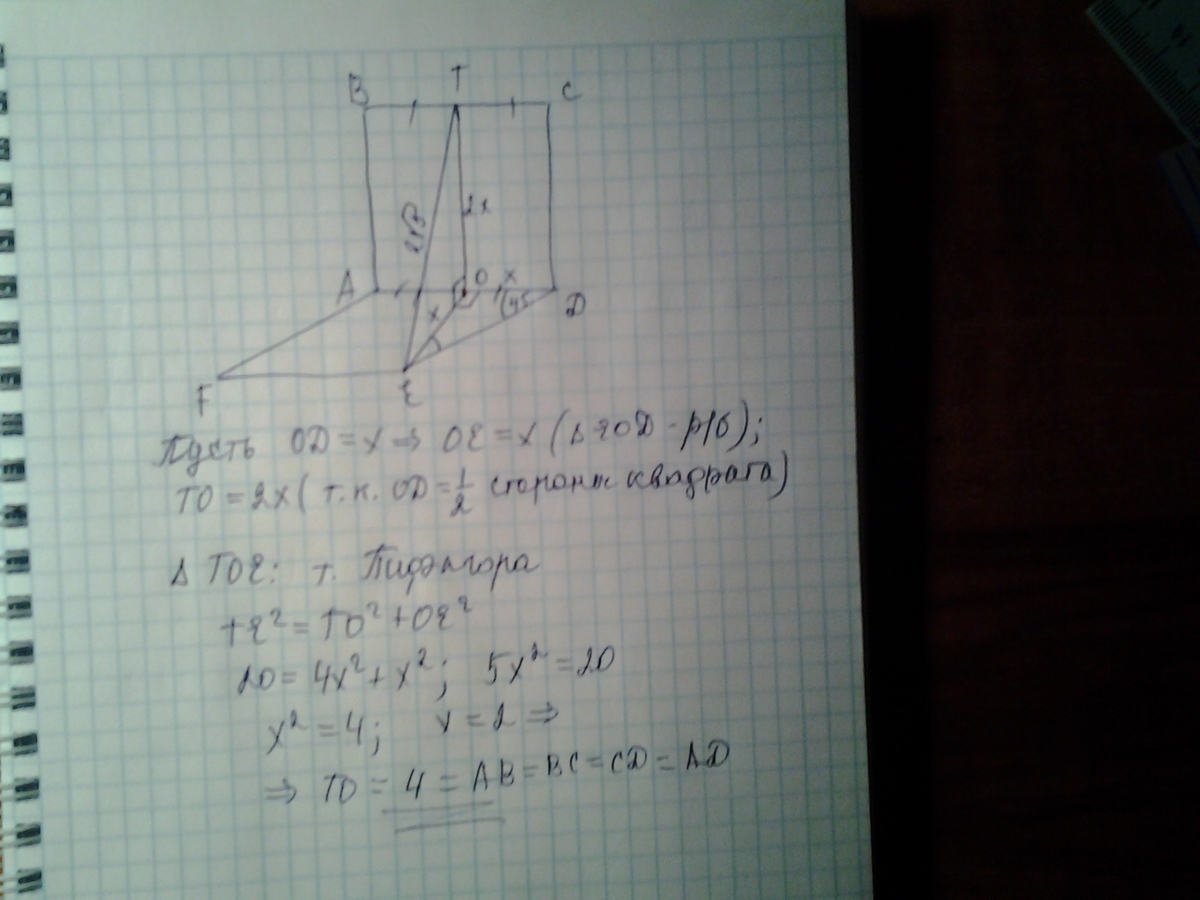 B T C
2√5 2x
A O x 45 D
x
F E
Пусть OD = x ⇒ OE = x (Δ EOD - р/б);
TO = 2x ( т.к. OD = 1/2 стороны квадрата)
Δ TOE: т. Пифагора
TE² = TO² + OE²
20 = 4x² + x²; 5x² = 20
x² = 4; x = 2 ⇒
⇒ TO = 4 = AB = BC = CD = AD